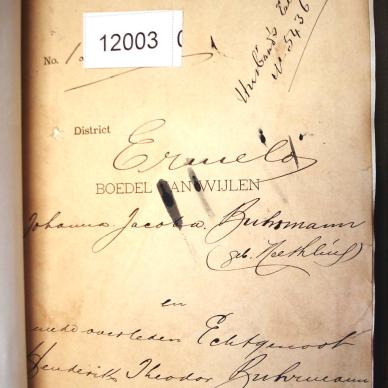 12003
No. 1
Husband's
No. 5436
District
Ermelo
BOEDEL VAN WIJLEN
Johanna Jacoba Buhrmann
(geb. Neethling)
en
mede overleden Echtgenoot
Henderik Theodor Buhrmann